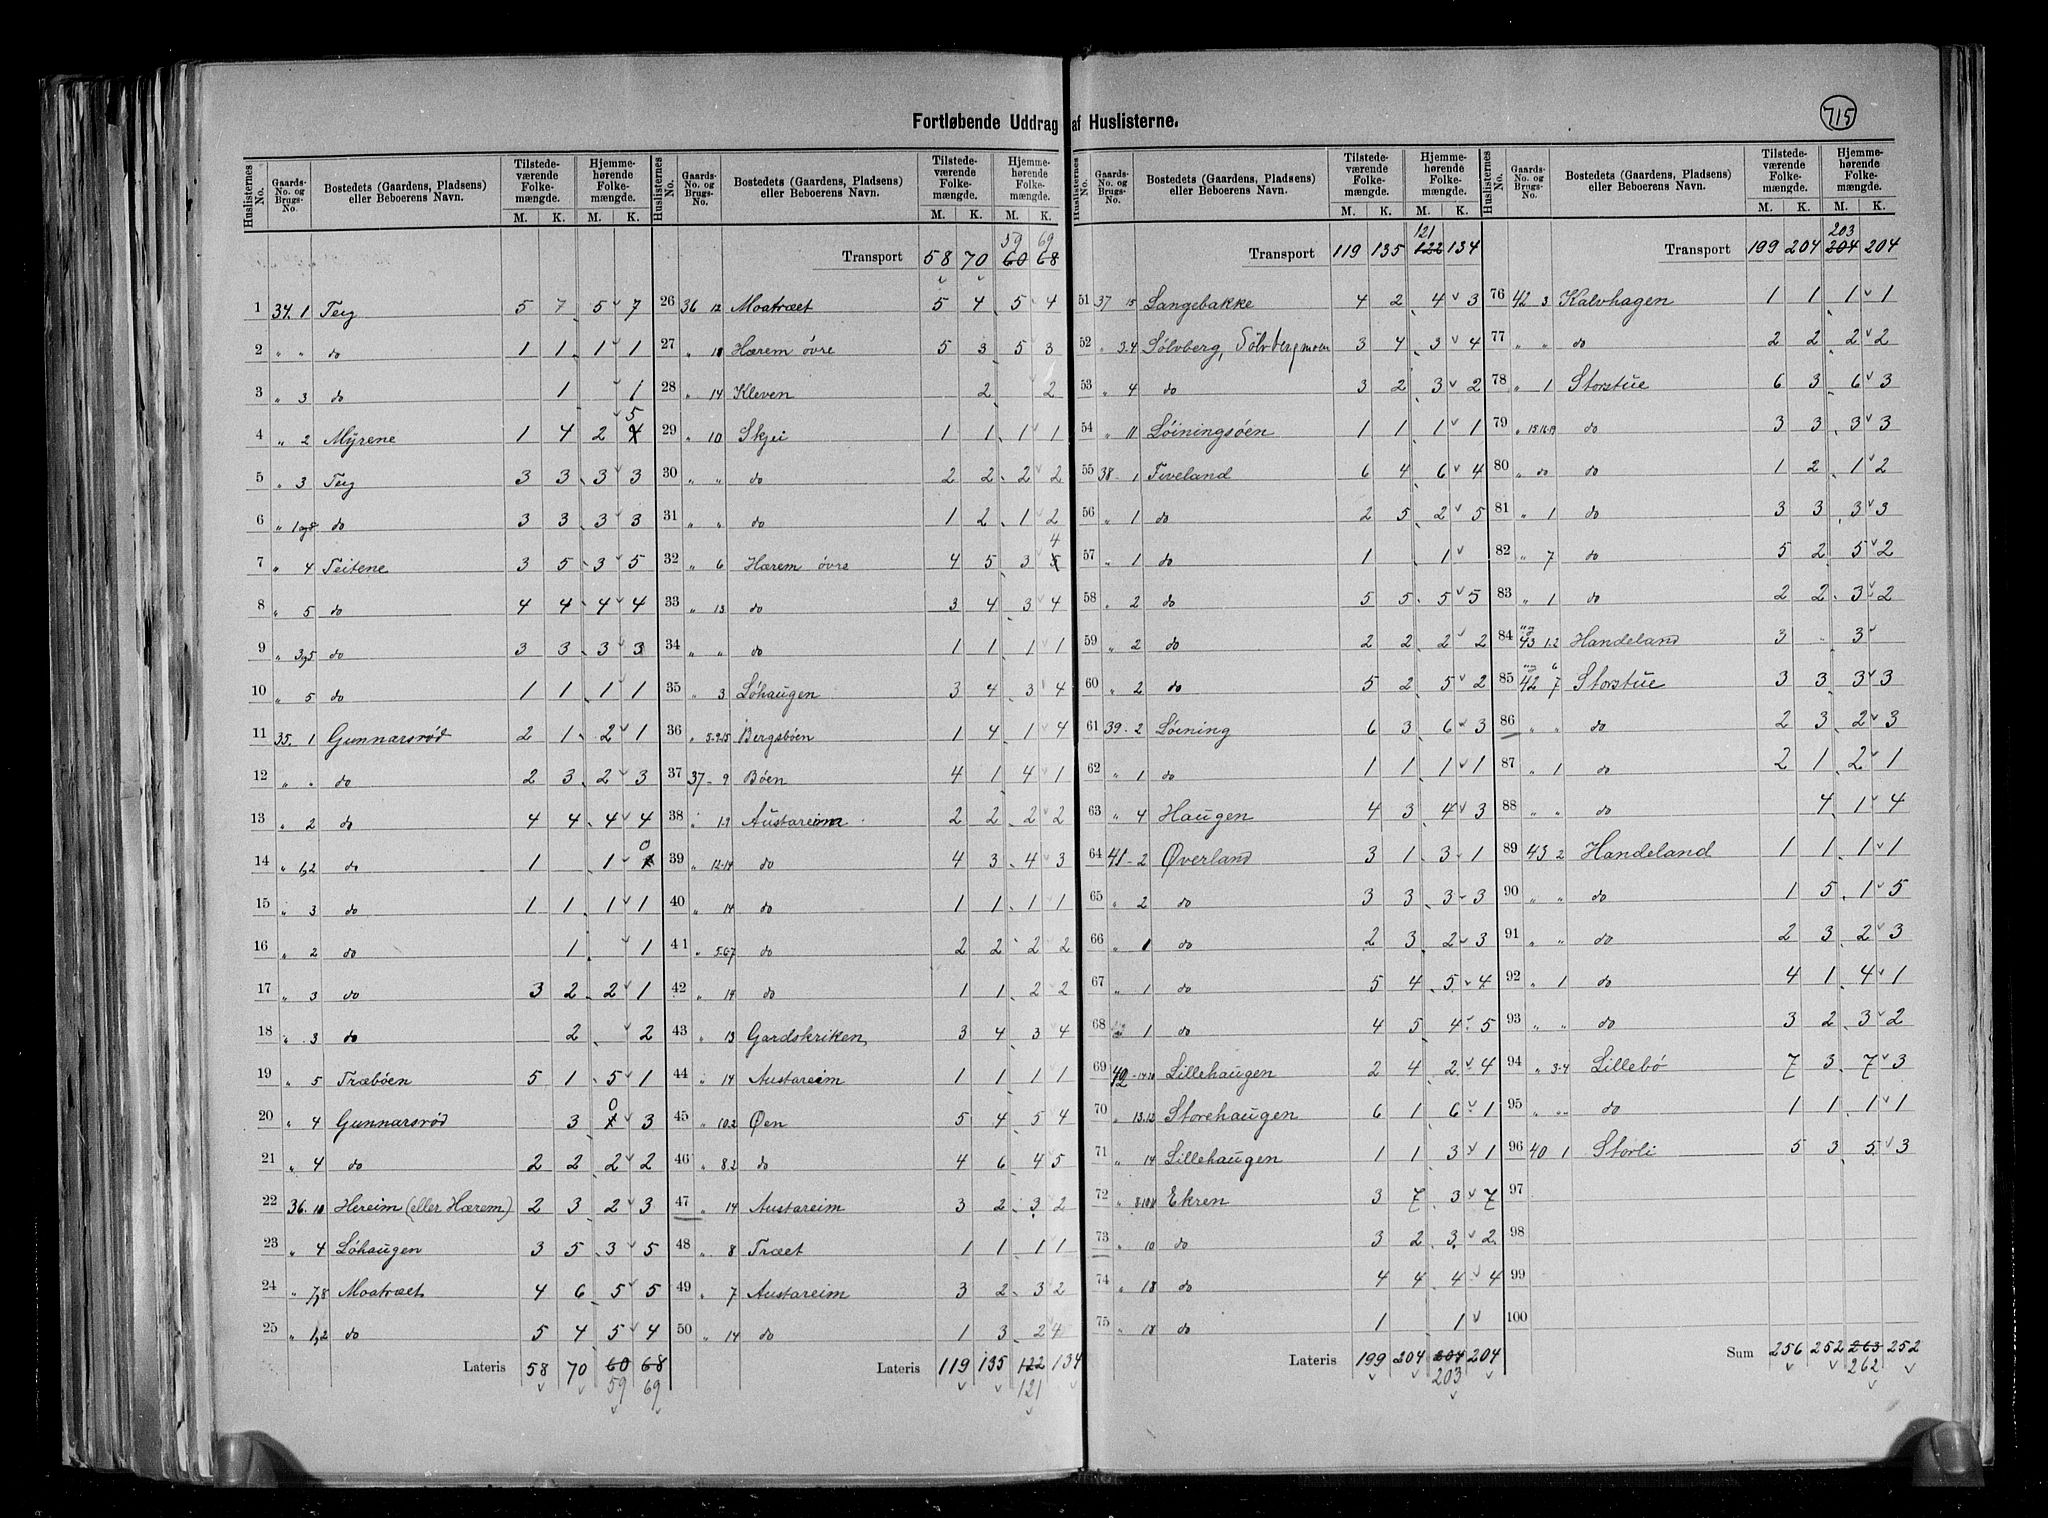 715
Fortløbende Uddrag af Huslisterne.
Huslisternes No. Gaards-No. og Brugs-No. Bostedets (Gaardens, Pladsens) eller Beboerens Navn. Tilstede-værende Folke-mængde. M. K. Hjemme-hørende Folke-mængde. M. K.
1 34. 1 Teig 5 7 5 7
2 " " do 1 1 1 1
3 " 3 do 1 1
4 " 2 Myrene 1 4 2 4 5
5 " 3 Teig 3 3 3 3
6 " 1og8 do 3 3 3 3
7 " 4 Teitene 3 5 3 5
8 " 5 do 4 4 4 4
9 " 3,5 do 3 3 3 3
10 " 5 do 1 1 1 1
11 35. 1 Gunnarsrød 2 1 2 1
12 " " do 2 3 2 3
13 " 2 do 4 4 4 4
14 " 1,2 do 1 1 0
15 " 3 do 1 1 1 1
16 " 2 do 1 1
17 " 3 do 3 2 2 1
18 " 3 do 2 2
19 " 5 Træbøen 5 1 5 1
20 " 4 Gunnarsrød 3 0 3
21 " 4 do 2 2 2 2
22 36. 10 Hereim (eller Hærem) 2 3 2 3
23 " 4 Løhaugen 3 5 3 5
24 " 7,8 Moatræet 4 6 5 5
25 " 1,2 do 5 4 5 4
Lateris 58 70 60 68
59 69
Huslisternes No. Gaards-No. og Brugs-No. Bostedets (Gaardens, Pladsens) eller Beboerens Navn. Tilstede-værende Folke-mængde. M. K. Hjemme-hørende Folke-mængde. M. K.
59 69
Transport 58 70 60 68
26 36 12 Moatræet 5 4 5 4
27 " 10 Hærem øvre 5 3 5 3
28 " 14 Kleven 2 2
29 " 10 Skjei 1 1 1 1
30 " " do 2 2 2 2
31 " " do 1 2 1 2
32 " 6 Hærem øvre 4 5 3 5 4
33 " 13 do 3 4 3 4
34 " " do 1 1 1 1
35 " 3 Løhaugen 3 4 3 4
36 " 5-9.15 Bergsbøen 1 4 1 4
37 37- 9 Bøen 4 1 4 1
38 " 1.9 Austareim 2 2 2 2
39 " 12-14 do 4 3 4 3
40 " 14 do 1 1 1 1
41 " 5.67 do 2 2 2 2
42 " 14 do 1 1 2 2
43 " 13 Gardskriken 3 4 3 4
44 " 14 Austareim 1 1 1 1
45 " 10.2 Øen 5 4 5 4
46 " 8.2 do 4 6 4 5
47 " 14 Austareim 3 2 3 2
48 " 8 Træet 1 1 1 1
49 " 7 Austareim 3 2 3 2
50 " 14 do 1 3 2 4
Lateris 119 135 122 134
121
Huslisternes No. Gaards-No. og Brugs-No. Bostedets (Gaardens, Pladsens) eller Beboerens Navn. Tilstede-værende Folke-mængde. M. K. Hjemme-hørende Folke-mængde. M. K.
121
Transport 119 135 122 134
51 37 15 Langebakke 4 2 4 3
52 " 3.4 Sølvberg, Sølvbergmoen 3 4 3 4
53 " 4 do 3 2 3 2
54 " 11 Løiningsøen 1 1 1 1
55 38- 1 Tveland 6 4 6 4
56 " 1 do 2 5 2 5
57 " 1 do 1 1
58 " 2 do 5 5 5 5
59 " 2 do 2 2 2 2
60 " 2 do 5 2 5 2
61 39- 2 Løining 6 3 6 3
62 " 1 do 1 1 1 1
63 " 4 Haugen 4 3 4 3
64 41- 2 Øverland 3 1 3 1
65 " 2 do 3 3 3 3
66 " 1 do 2 3 2 3
67 " 1 do 5 4 5 4
68 1 do 4 5 4 5
69 42 -14.20 Lillehaugen 2 4 2 4
70 " 13.12 Storehaugen 6 1 6 1
71 " 14 Lillehaugen 1 1 3 1
72 " Ekren 3 7 3 7
73 " 10 do 3 2 3 2
74 " 18 do 4 4 4 4
75 " 18 do 1 1
Lateris 199 204 204 204
203
Huslisternes No. Gaards-No. og Brugs-No. Bostedets (Gaardens, Pladsens) eller Beboerens Navn. Tilstede-værende Folke-mængde. M. K. Hjemme-hørende Folke-mængde. M. K.
203
Transport 199 204 204 204
76 42 3 Kalvhagen 1 1 1 1
77 " " do 2 2 2 2
78 " 1 Storstue 6 3 6 3
79 " 15.16.19 do 3 3 3 3
80 " do do 1 2 1 2
81 " 1 do 3 3 3 3
82 " 7 do 5 2 5 2
83 " 1 do 2 2 3 2
84 " og 43 1.2 Handeland 3 " 3
85 42 6 7 Storstue 3 3 3 3
86 " " do 2 3 2 3
87 " 1 do 2 1 2 1
88 " " do 4 1 4
89 43 2 Handeland 1 1 1 1
90 " " do 1 5 1 5
91 " " do 2 3 2 3
92 " 1 do 4 1 4 1
93 " " do 3 2 3 2
94 " 3-4 Lillebø 7 3 7 3
95 " " do 1 1 1 1
96 40 1 Storli 5 3 5 3
97
98
99
100
Sum 256 252 263 252
262